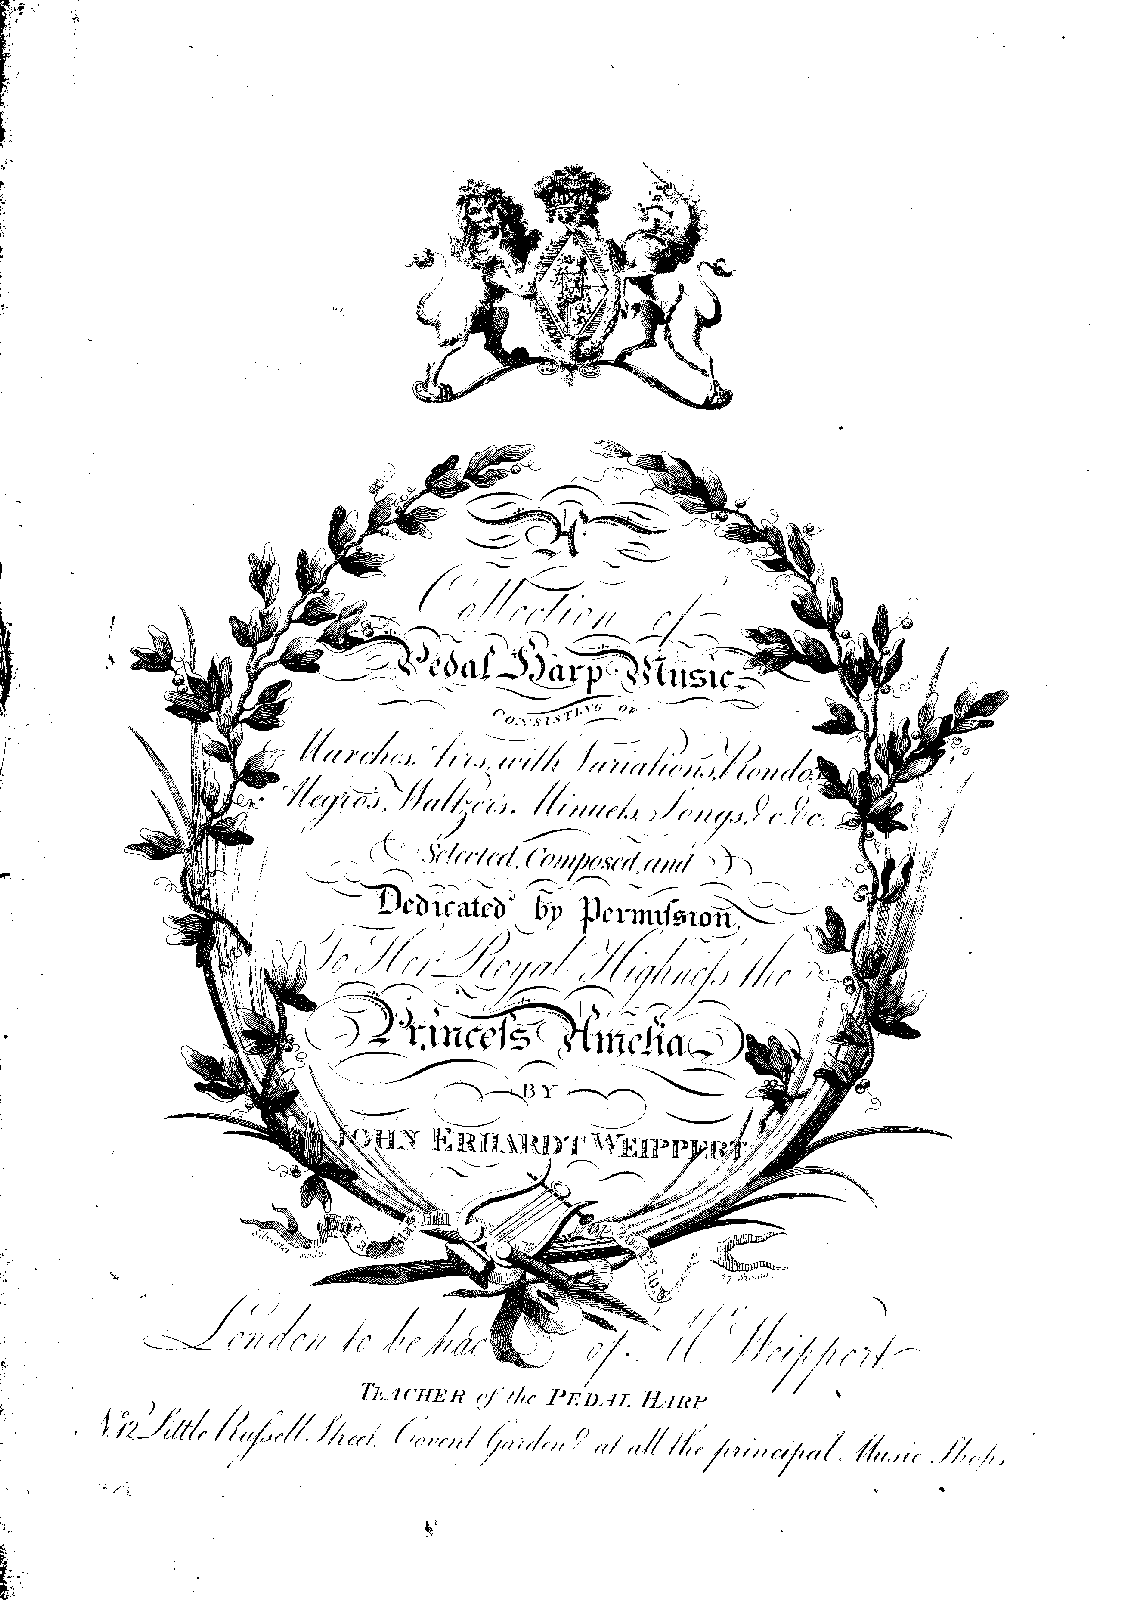 A
Collection of
Pedal Harp Music,
CONSISTING OF
Marches, Airs, with Variations, Rondos,
Negros, Waltzer's, Minuets, Songs, &c. &c.
Selected, Composed, and
Dedicated by Permiſsion,
To Her Royal Highneſs the
Princeſs Amelia
BY
JOHN ERHARDT WEIPPERT
London to be had of Mr. Weippert
TEACHER of the PEDAL HARP
No. 12 Little Ruſsell Street, Covent Garden & at all the principal Music Shops